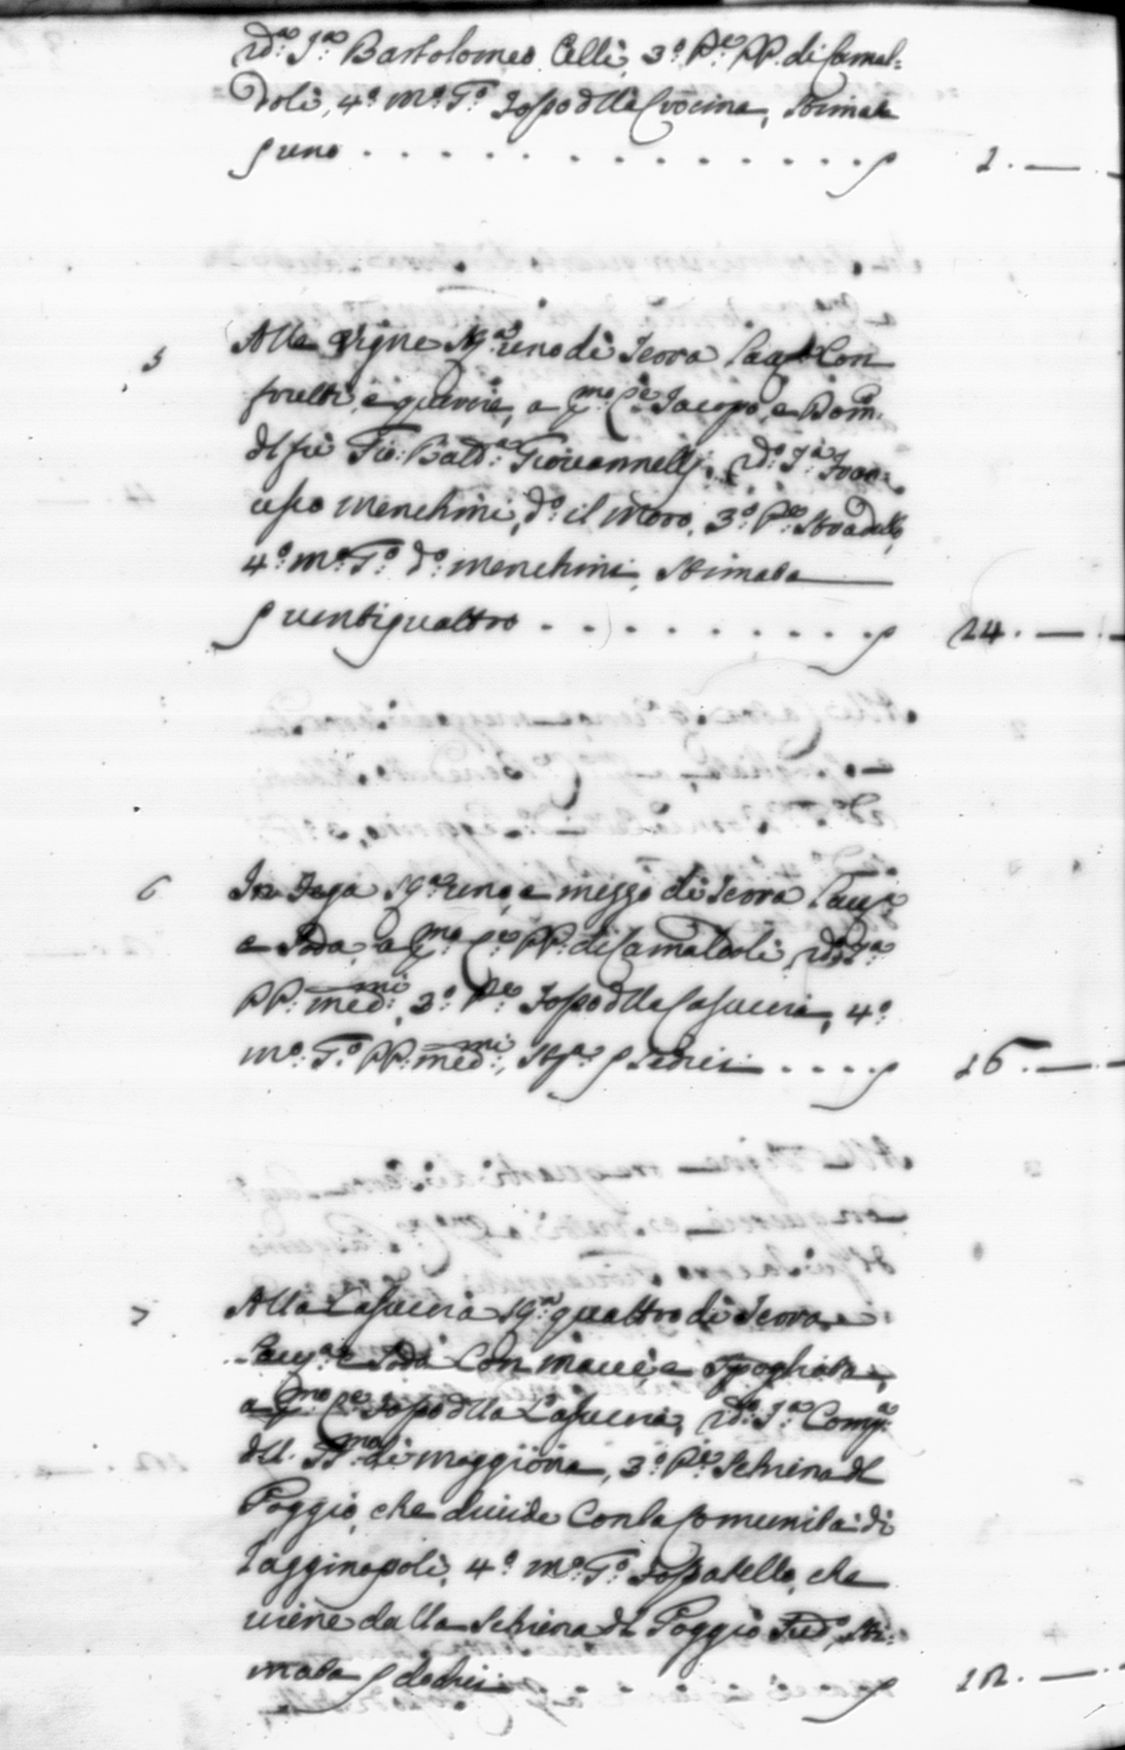 2do: Ja: Bartolomeo Celli, 3o: Pe: PP. di Camal=
doli, 4o: Mo: To: Fosso dlla Crocina, Stimata
ſ uno . . . . . . . . . . . . . . ſ 1. —
5 Alle Vigne Sqa: uno di Terra Laua Con
frutti, e querce, a Pmo: Ce: Jacopo, e Dom:
dl fù Gio: Batta: Giovannelli, 2do: Ja: Fran=
cesco Menchini, do: il Moro, 3o: Pe: Stradello,
4o: Mo: To: do: Menchini, Stimata
ſ ventiquattro . . . . . . . . . . ſ 24. —
6 In Sqa: uno, e mezzo di Terra Laua:
e Soda, a Pmo: Ce: PP. di Camaldoli, 2do: Ja:
PP. medmi:, 3o: Pe: Fosso dlla Casuccia, 4o:
Mo: To: PP. medmi:, Sta: ſ Sedici . . . . ſ 16. —
7 Alla Casuccia Sqa: quattro di Terra
Laua: e Soda Con macie, e Spogliata,
a Pmo: Ce: Fosso dlla Casuccia, 2do: Ja: Compa:
dll. SSma: di Moggiona, 3o: Pe: Schiena dl
Poggio, che divide Con la Comunita di
Ragginopoli, 4o: Mo: To: Fossatello, che
viene dalla Schiena dl Poggio Sudo:, Sti=
mata ſ dodici . . . . . . . ſ 12. —